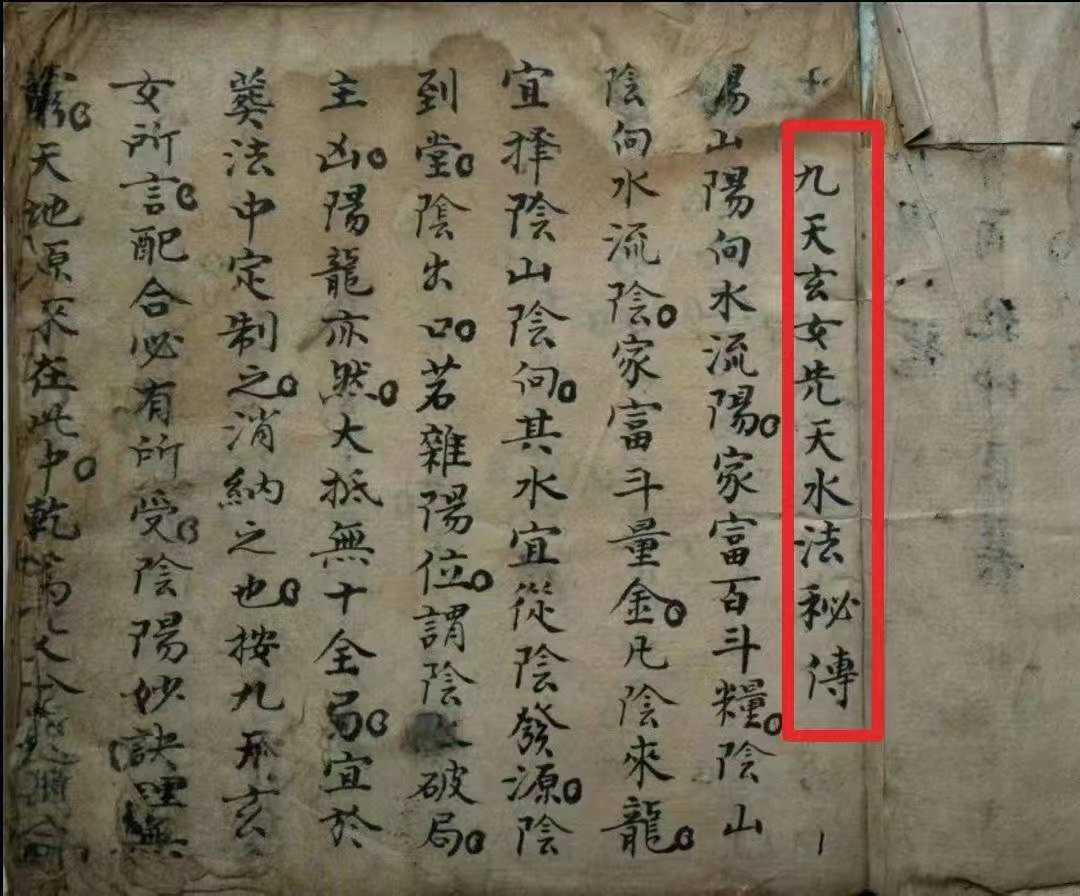 九天玄女先天水法秘傳
陽山陽向水流陽。家富百斗糧。陰山
陰向水流陰。家富斗量金。凡陰來龍。
宜擇陰山陰向。其水宜從陰發源。陰
到堂。陰出口。若雜陽位。謂陰 破局。
主凶。陽龍亦然。大抵無十全局。宜於
葬法中定制之。消納之也。按九天玄
女所言。配合必有所受。陰陽妙訣理無
天地原來在此中。乾